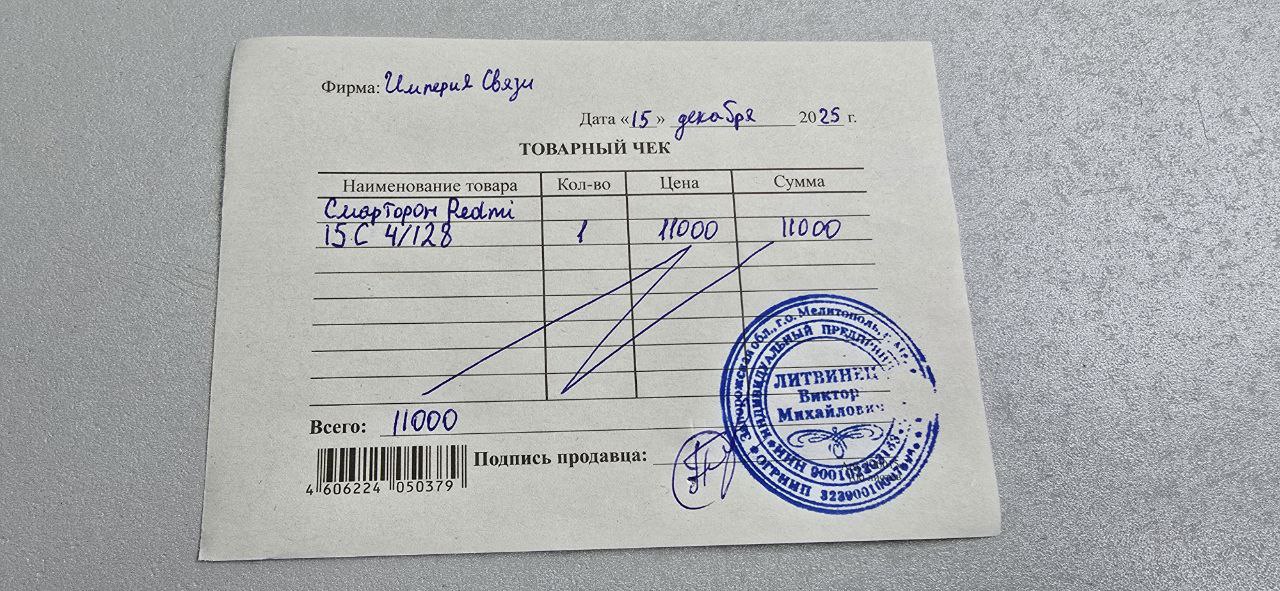 Фирма: Империя Связи
Дата «15» декабря 2025 г.
ТОВАРНЫЙ ЧЕК
Наименование товара Кол-во Цена Сумма
Смартфон Redmi
15C 4/128 1 11000 11000
Всего: 11000
Подпись продавца:
4 606224 050379
Запорожская обл., г.о. Мелитополь, г.
ИНДИВИДУАЛЬНЫЙ
ЛИТВИНЕЦ
Виктор
Михайлович
ИНН
ОГРНИП